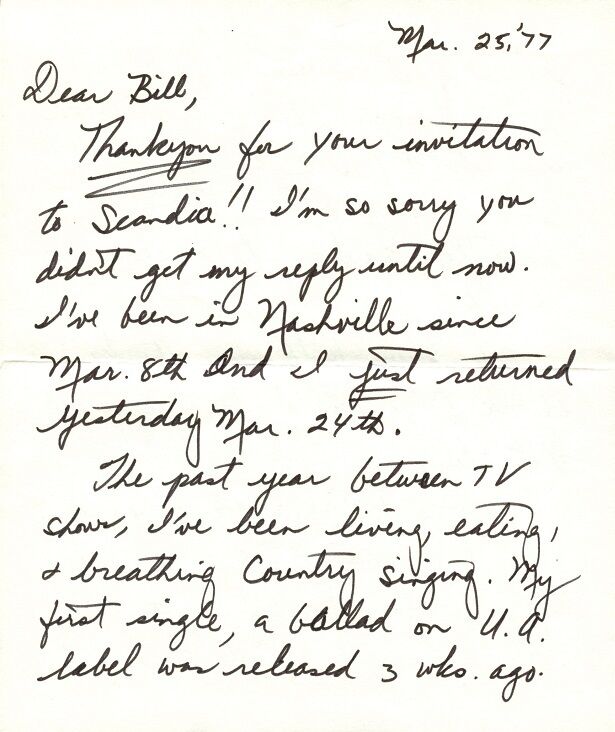 Mar. 25, '77
Dear Bill,
Thankyou for your invitation
to Scandia!! I'm so sorry you
didn't get my reply until now.
I've been in Nashville since
Mar. 8th and I just returned
yesterday Mar. 24th.
The past year between TV
shows, I've been living, eating,
& breathing Country singing. My
first single, a ballad on U.A.
label was released 3 wks. ago.